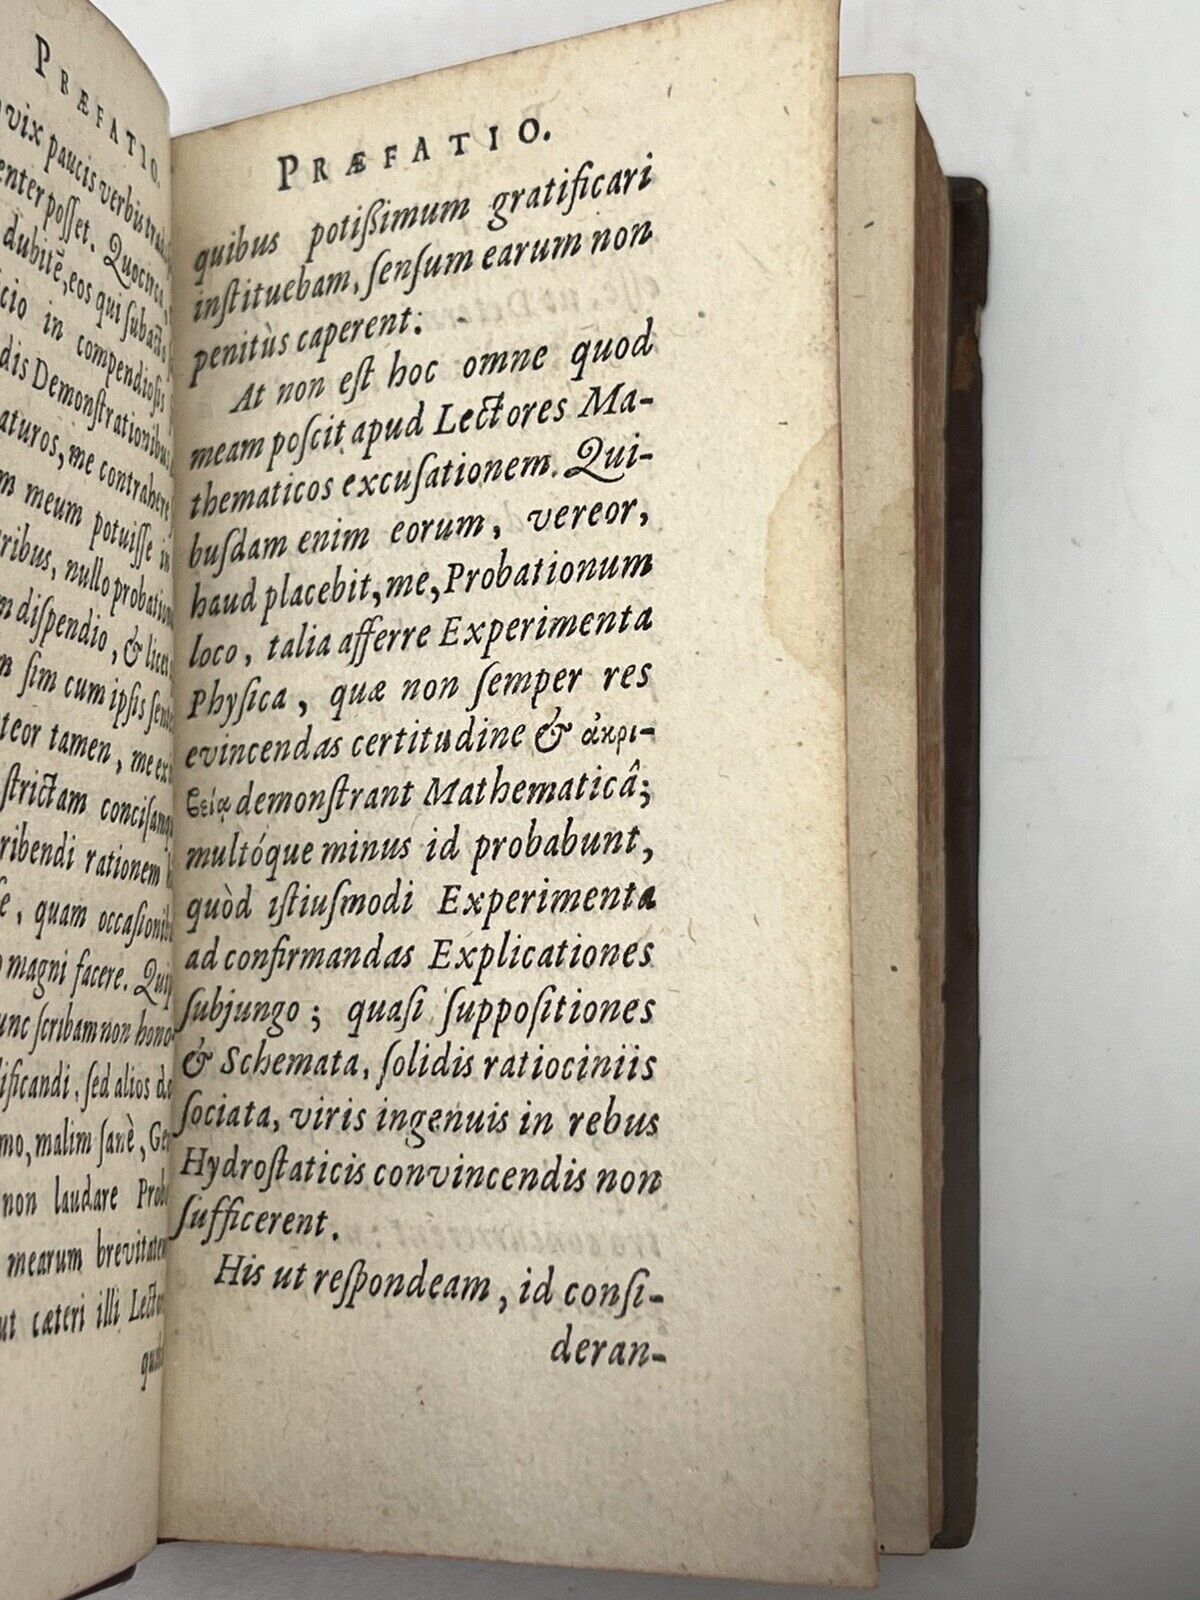 PRÆFATIO.
vix paucis verbis
enter poſſet. Quocirca,
dubitē, eos qui ſubacto
cio in compendioſis
dis Demonſtrationibus
aturos, me contrahere
m meum potuiſſe in
ribus, nullo
diſpendio, & licet
ſim cum ipſis
teor tamen, me
ſtrictam
ribendi rationem
quam
magni facere.
nc ſcribam non
ificandi, ſed alios
mo, malim ſanè,
non laudare
mearum brevitatem
ut cæteri illi
PRÆFATIO.
quibus potiſſimum gratificari
inſtituebam, ſenſum earum non
penitùs caperent:
At non eſt hoc omne quod
meam poſcit apud Lectores Ma-
thematicos excuſationem. Qui-
buſdam enim eorum, vereor,
haud placebit, me, Probationum
loco, talia afferre Experimenta
Phyſica, quæ non ſemper res
evincendas certitudine & ἀκρι-
ϐείᾳ demonſtrant Mathematicâ;
multóque minus id probabunt,
quòd iſtiuſmodi Experimenta
ad confirmandas Explicationes
ſubjungo; quaſi ſuppoſitiones
& Schemata, ſolidis ratiociniis
ſociata, viris ingenuis in rebus
Hydroſtaticis convincendis non
ſufficerent.
His ut reſpondeam, id conſi-
deran-